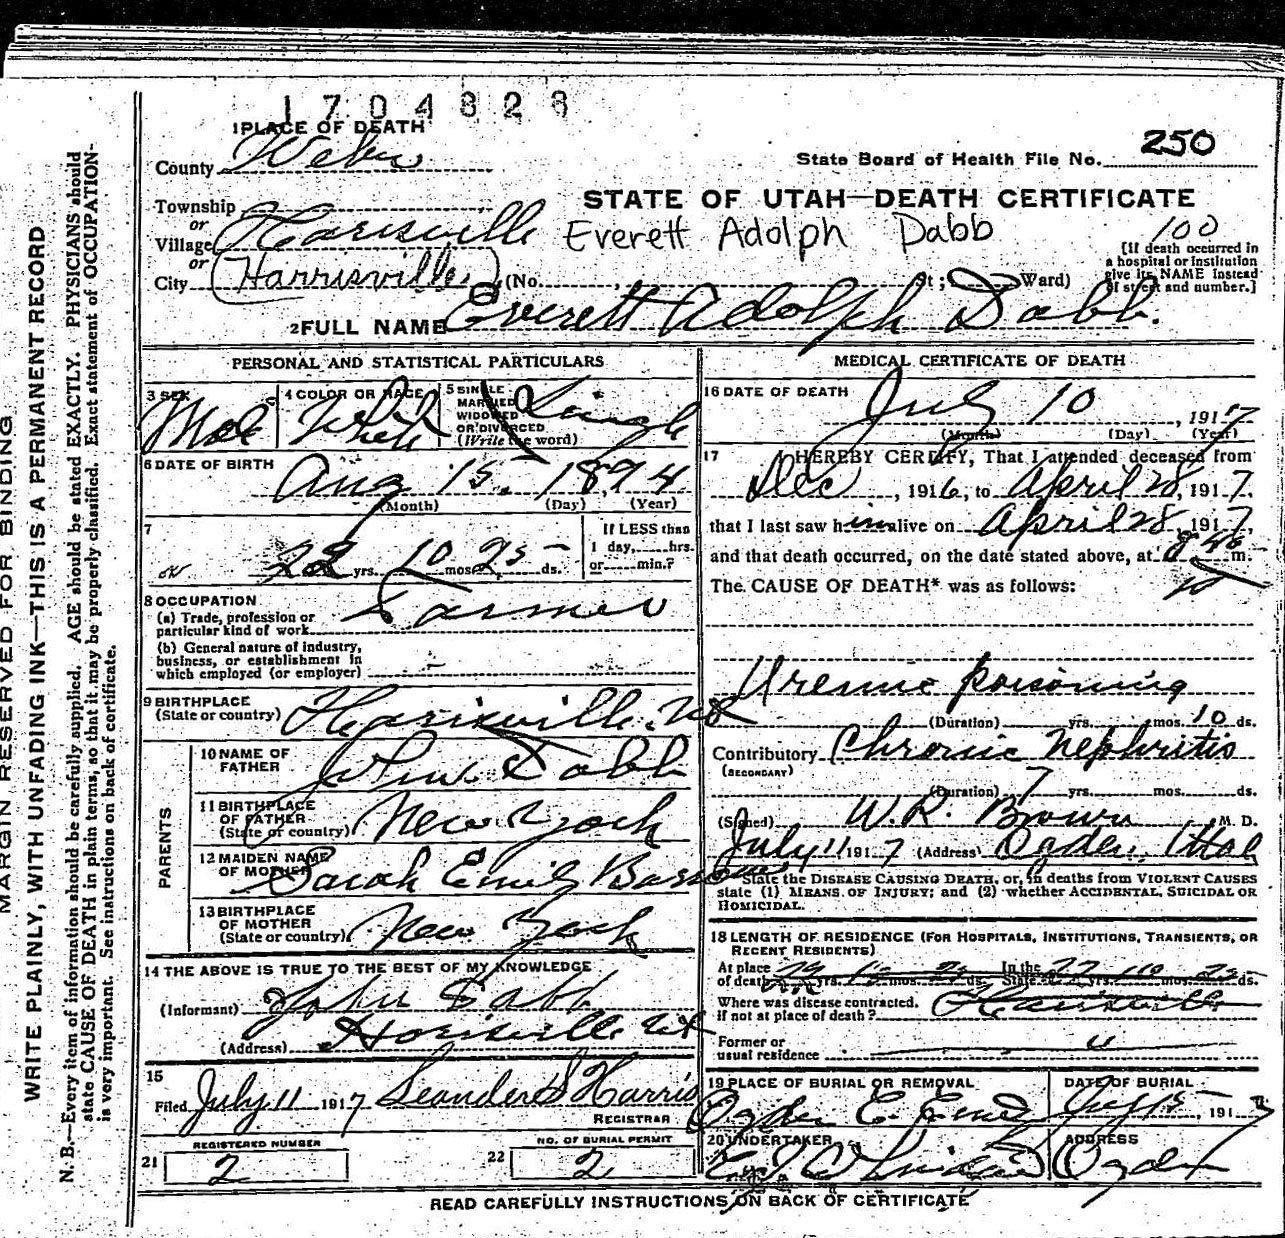 1704323
1 PLACE OF DEATH
County Weber
State Board of Health File No. 250
STATE OF UTAH—DEATH CERTIFICATE
Township
or
Village Harisville
Everett Adolph Dabb
100
or
City Harrisville (No. St; Ward)
[If death occurred in
a hospital or institution
give its NAME instead
of street and number.]
2 FULL NAME Everett Adolph Dabb.
PERSONAL AND STATISTICAL PARTICULARS
3 SEX Male
4 COLOR OR RACE White
5 SINGLE
MARRIED
WIDOWED
OR DIVORCED
(Write the word)
Single
6 DATE OF BIRTH
Aug 15. 1894
(Month) (Day) (Year)
7
22 yrs. 10 mos. 25 ds.
If LESS than
1 day, hrs.
or min.?
8 OCCUPATION
(a) Trade, profession or
particular kind of work
Farmer
(b) General nature of industry,
business, or establishment in
which employed (or employer)
9 BIRTHPLACE
(State or country) Harisville. Ut
PARENTS
10 NAME OF
FATHER
John Dabb
11 BIRTHPLACE
OF FATHER
(State or country) New York
12 MAIDEN NAME
OF MOTHER Sarah Emily
13 BIRTHPLACE
OF MOTHER
(State or country) New York
14 THE ABOVE IS TRUE TO THE BEST OF MY KNOWLEDGE
(Informant) John Dabb
(Address) Harisville Ut
15
Filed July 11 1917 Leander S Harris
REGISTRAR
REGISTERED NUMBER
21 2
NO. OF BURIAL PERMIT
22 2
MEDICAL CERTIFICATE OF DEATH
16 DATE OF DEATH July 10, 1917
(Month) (Day) (Year)
17 I HEREBY CERTIFY, That I attended deceased from
Dec, 1916, to April 28, 1917,
that I last saw him alive on April 28, 1917,
and that death occurred, on the date stated above, at 8 m.
The CAUSE OF DEATH* was as follows:
Uremic poisoning
(Duration) yrs. mos. 10 ds.
Contributory Chronic Nephritis
(SECONDARY)
(Duration) 7 yrs. mos. ds.
(Signed) W.R. Brown M. D.
July 11 1917 (Address) Ogden, Utah
*State the DISEASE CAUSING DEATH, or, in deaths from VIOLENT CAUSES
state (1) MEANS OF INJURY; and (2) whether ACCIDENTAL, SUICIDAL OR
HOMICIDAL.
18 LENGTH OF RESIDENCE (FOR HOSPITALS, INSTITUTIONS, TRANSIENTS, OR
RECENT RESIDENTS)
At place
of death yrs. mos. ds. In the
State 22 yrs. 10 mos. 25 ds.
Where was disease contracted.
if not at place of death? Harisville
Former or
usual residence
19 PLACE OF BURIAL OR REMOVAL
Ogden
DATE OF BURIAL
July 15, 191
20 UNDERTAKER
ADDRESS
Ogden
READ CAREFULLY INSTRUCTIONS ON BACK OF CERTIFICATE
MARGIN RESERVED FOR BINDING
WRITE PLAINLY, WITH UNFADING INK—THIS IS A PERMANENT RECORD
N. B.—Every item of information should be carefully supplied. AGE should be stated EXACTLY. PHYSICIANS should
state CAUSE OF DEATH in plain terms, so that it may be properly classified. Exact statement of OCCUPATION-
is very important. See instructions on back of certificate.